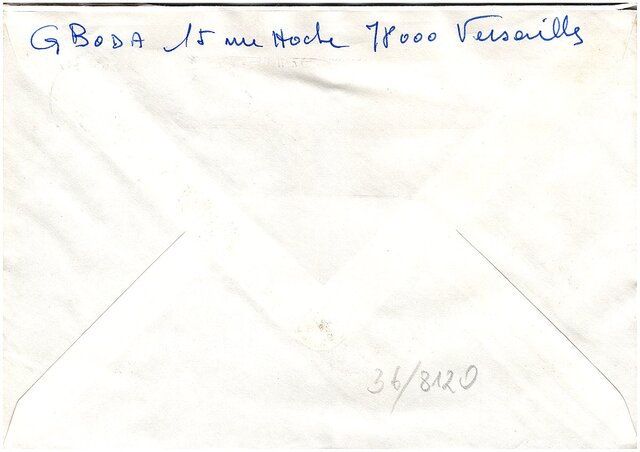 G BODA 15 rue Hoche 78000 Versailles
36/8120